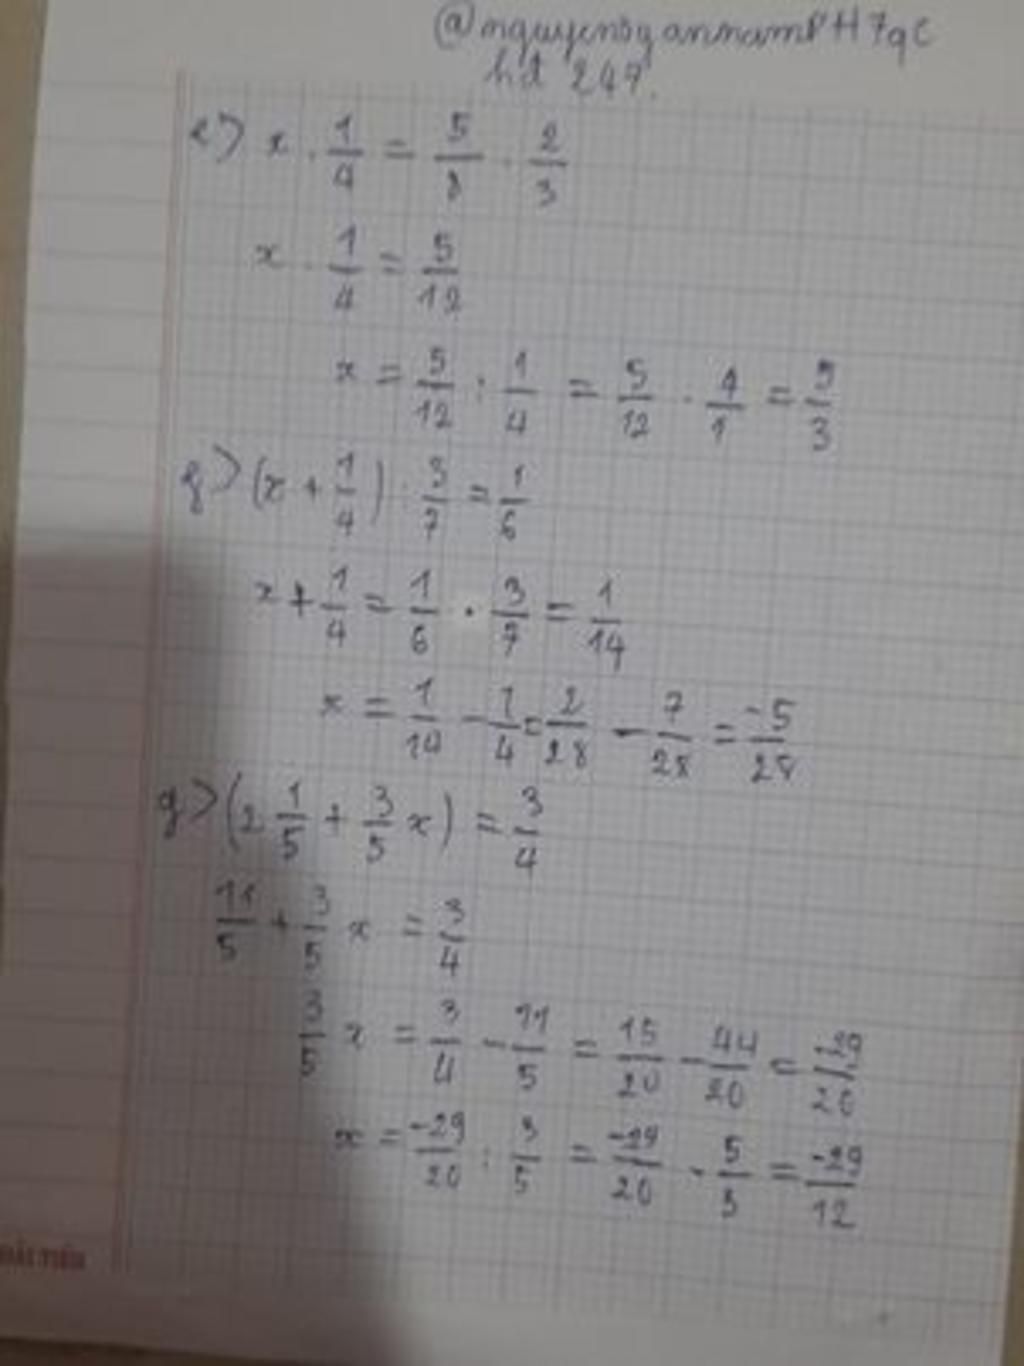 @nguyenngannamPH7gc
hd 247.
e) x . 1/4 = 5/8 . 2/3
x . 1/4 = 5/12
x = 5/12 : 1/4 = 5/12 . 4/1 = 5/3
f) (x + 1/4) : 3/7 = 1/6
x + 1/4 = 1/6 . 3/7 = 1/14
x = 1/14 - 1/4 = 2/28 - 7/28 = -5/28
g) (2 1/5 + 3/5 x) = 3/4
11/5 + 3/5 x = 3/4
3/5 x = 3/4 - 11/5 = 15/20 - 44/20 = -29/20
x = -29/20 : 3/5 = -29/20 . 5/3 = -29/12